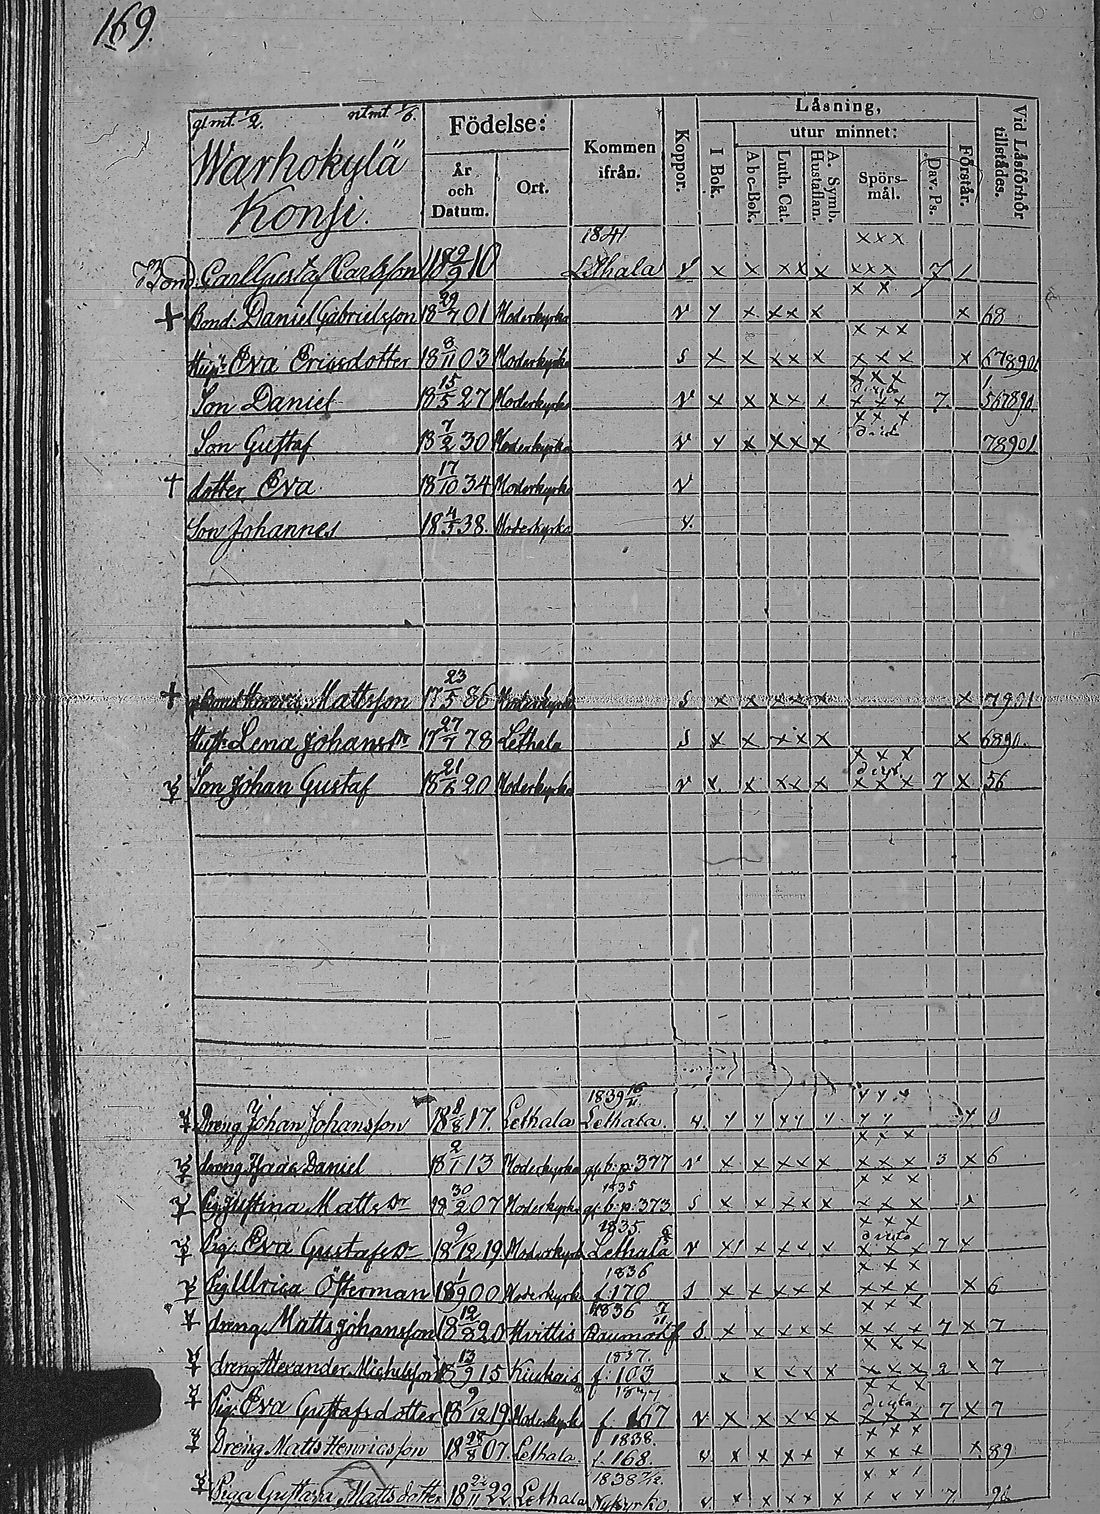 169.
glmt. 1/2. ntmt 1/6.
Warhokylä
Konsi.
Födelse:
År och Datum.
Ort.
Kommen ifrån.
Koppor.
Läsning,
I Bok.
utur minnet:
Abc-Bok.
Luth. Cat.
A. Symb. Hustaflan.
Spörs-mål.
Dav. Ps.
Förstår.
Vid Läsförhör tillstådes.
1841 x x x
Bond. Carl Gustaf Carlsson 18 9/9 10 Lethala v x x x x x x x x 7 /
x x
+ Bond: Daniel Gabrielsson 18 29/7 01 Moderkyrka v y x x x x x 68
x x x
Hust. Eva Ericsdotter 18 8/11 03 Moderkyrka s x x x x x x x x x 678901
x x x
Son Daniel 18 15/5 27 Moderkyrka v x x x x x x x 7. 567890
x x x
Son Gustaf 18 7/2 30 Moderkyrka v y x x x x 78901
+ dotter Eva 18 17/10 34 Moderkyrka v
Son Johannes 18 4/5 38. Moderkyrka v.
+ Mattsson 17 23/5 86 Moderkyrka s x x x x x x 7901
Hust. Lena Johansdr 17 27/7 78 Lethala s x x x x x x 6890.
x x x
Son Johan Gustaf 18 21/6 20 Moderkyrka v x. x x x x x x x 7 x 56
1839 16/11
Dreng Johan Johansson 18 8/8 17. Lethala Lethala. v. y y y y y y y y 0
x x x
dreng Isaac Daniel 18 2/1 13 Moderkyrka gl. b. p. 377 v x x x x x x x x 3 x 6
1835 x x x
Pig. Justina Matts Dr 18 30/2 07 Moderkyrka gl. b. p. 373 s x x x x x x x x x
1835 x x x
Pig. Eva Gustafs Dr 18 9/12 19 Moderkyrk Lethala v x x x x x 7 x
1836 x x x
Pig Ulrica Österman 18 1/9 00 Moderkyrk f. 170 s x x x x x x x x x 6
1836 7/11 x x x
dreng. Matts Johansson 18 12/8 20 Hvittis Raumo s x x x x x x x x 7 x 7
1837. x x x
dreng Alexander Michelsson 18 13/9 15 Kiukais f. 103 x x x x x x x x 2 x 7
1837 x x x
Pig. Eva Gustafsdotter 18 9/12 19 Moderkyrk f. 167 v x x x x x x x x 7 x 7
1838 x x x
Dreng Matts Henricsson 18 28/8 07. Lethala. f. 168. v x x x x x x x x x 89
1838 x x
Piga Gustava Matts dotter 18 22. Lethala Nykyrko. v x x x x x x x x 7.